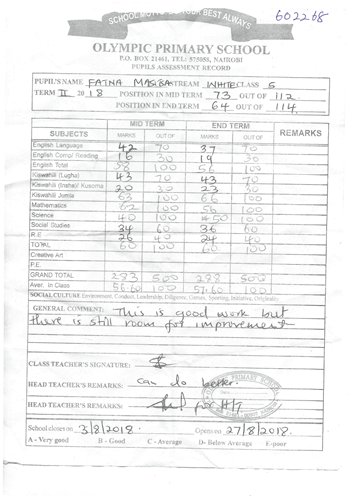 SCHOOL MOTTO BEST ALWAYS
602268
OLYMPIC PRIMARY SCHOOL
P.O. BOX 21461, TEL: 575058, NAIROBI
PUPILS ASSESSMENT RECORD
PUPIL'S NAME FATNA STREAM WHITE CLASS 5
TERM II 2018 POSITION IN MID TERM 73 OUT OF 112
POSITION IN END TERM 64 OUT OF 114
MID TERM END TERM
SUBJECTS MARKS OUT OF MARKS OUT OF REMARKS
English Language 42 70 37 70
English Compl Reading 16 30 19 30
English Total 58 100 56 100
Kiswahili (Lugha) 43 70 43 70
Kiswahili (Insha)/ Kusoma 20 30 23 30
Kiswahili Jumla 63 100 66 100
Mathematics 62 100 56 100
Science 40 100 50 100
Social Studies 34 60 36 60
R.E 26 40 24 40
TOTAL 60 100 60 100
Creative Art
P.E.
GRAND TOTAL 283 500 288 500
Aver. In Class 56.60 100 57.60 100
SOCIAL CULTURE Environment, Conduct, Leadership, Diligence, Games, Sporting, Initiative, Originality
GENERAL COMMENT: This is good work but
there is still room for improvement
CLASS TEACHER'S SIGNATURE:
HEAD TEACHER'S REMARKS: can do better.
HEAD TEACHER'S REMARKS: for H/T
School closes on 3/8/2018. Opens on 27/8/2018.
A - Very good B - Good C - Average D- Below Average E-poor